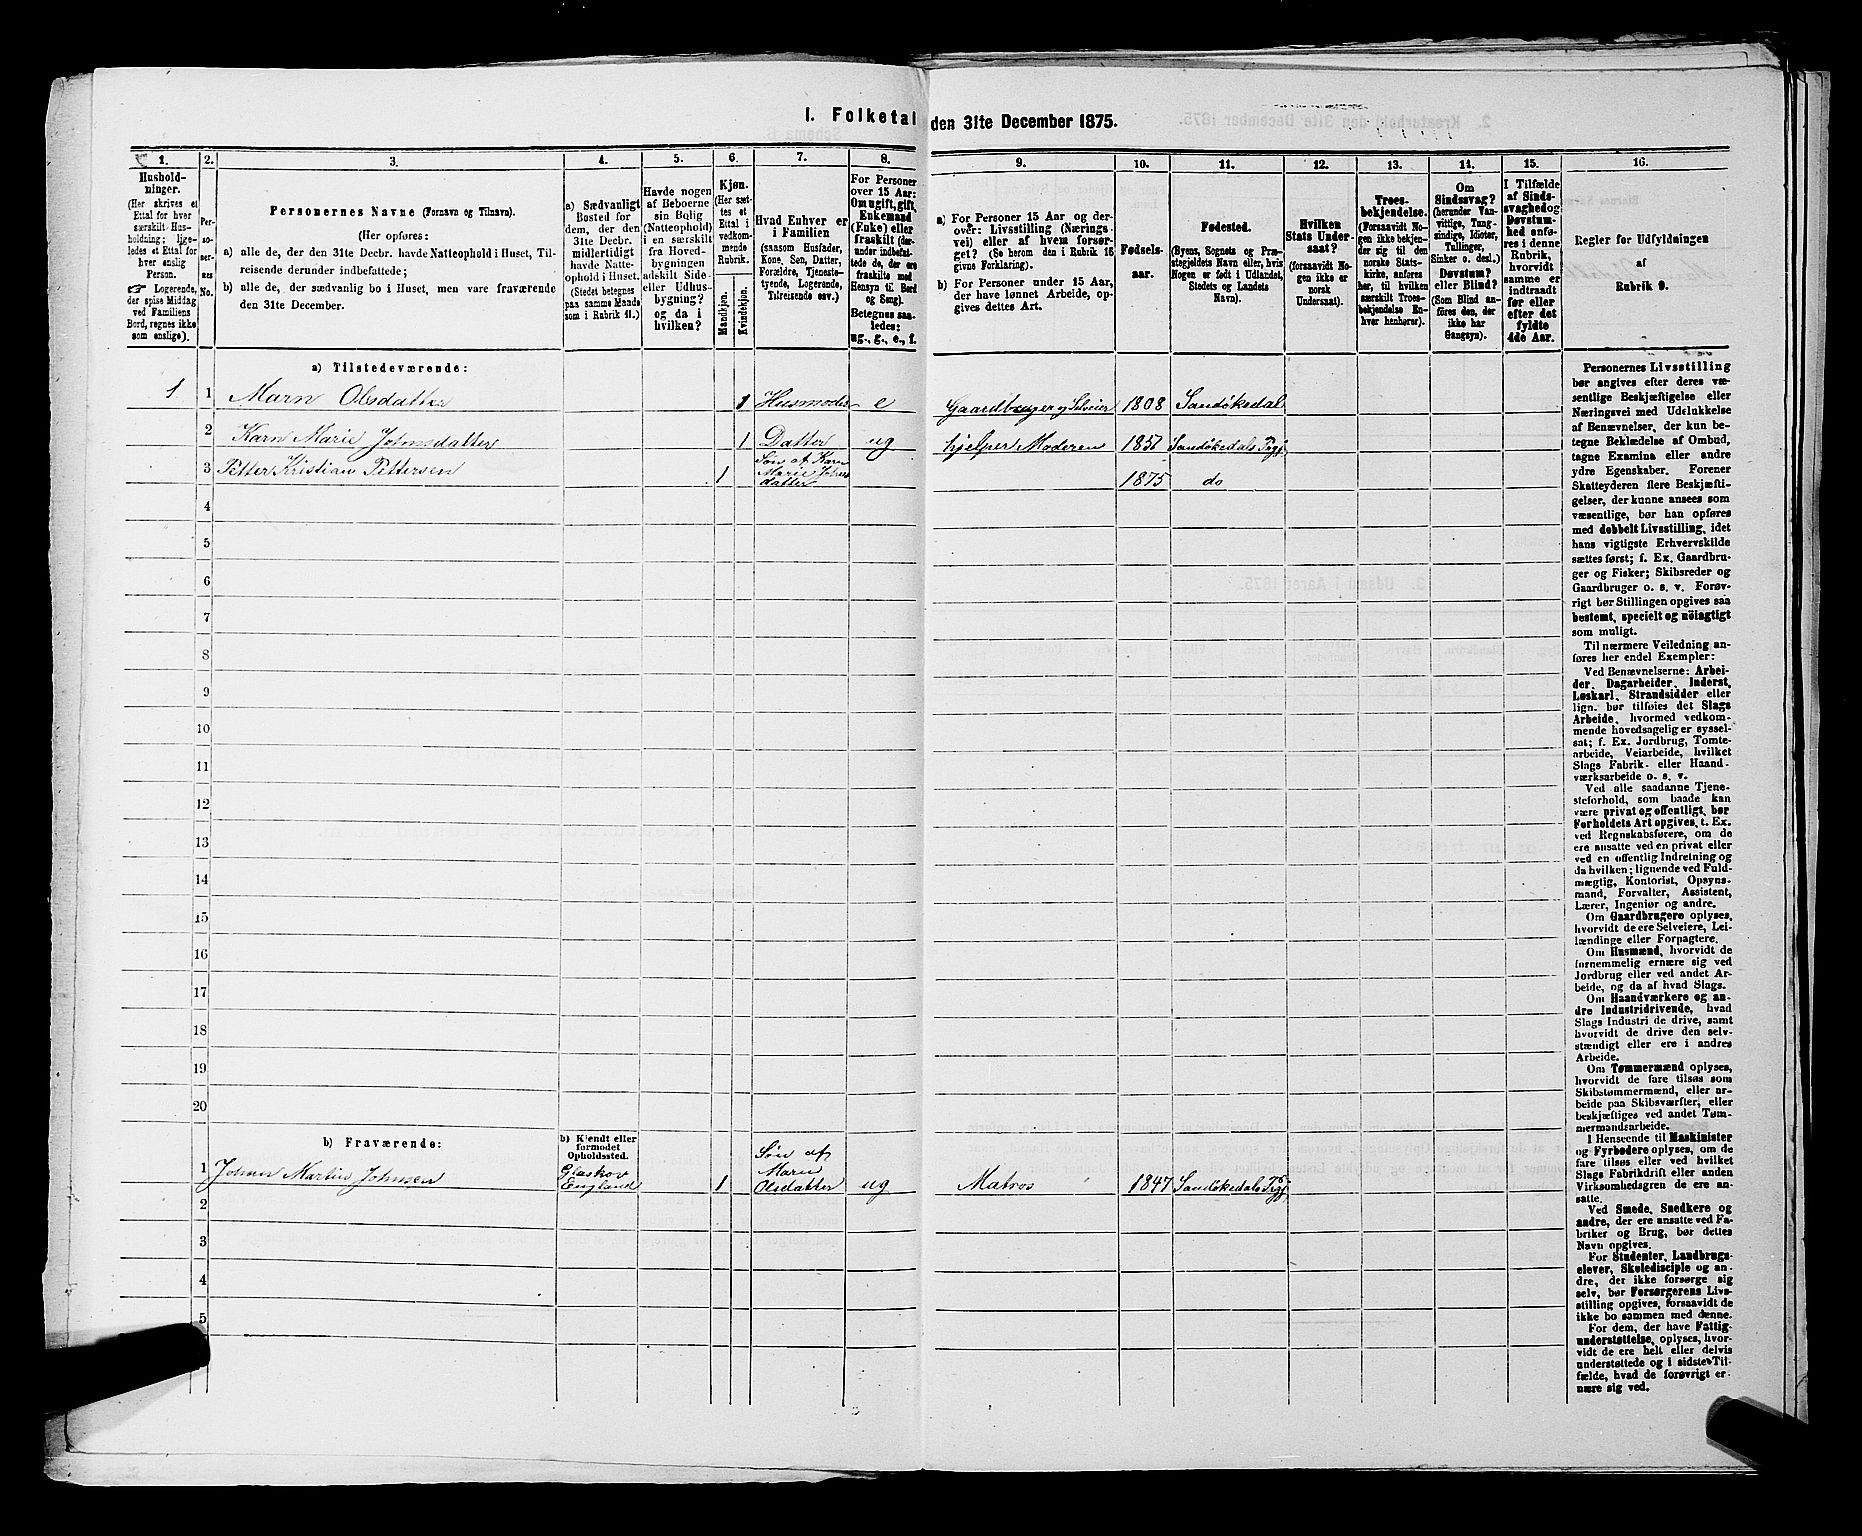 I. Folketal den 31te December 1875.
1.
2.
3.
4.
5.
6.
7.
8.
9.
10.
11.
12.
13.
14.
15.
16.
Husholdninger.
(Her skrives et
Ettal for hver
særskilt Husholdning;
ligeledes et Ettal for
hver enslig
Person.
☞ Logerende,
der spise Middag
ved Familiens
Bord, regnes ikke
som enslige).
Personernes No.
Personernes Navne (Fornavn og Tilnavn).
(Her opføres:
a) alle de, der den 31te Decbr. havde Natteophold i Huset, Tilreisende derunder indbefattede;
b) alle de, der sædvanlig bo i Huset, men vare fraværende
den 31te December.
a) Sædvanligt
Bosted for
dem, der den
31te Decbr.
midlertidigt
havde Natteophold i Huset.
(Stedet betegnes
paa samme Maade
som i Rubrik 11.)
Havde nogen
af Beboerne
sin Bolig
(Natteophold)
i en særskilt
fra Hovedbygningen
adskilt Side-
eller Udhusbygning?
og da i
hvilken?
Kjøn.
(Her sættes et
Ettal i
vedkommende
Rubrik.
Mandkjøn.
Kvindekjøn.
Hvad Enhver er
i Familien
(saasom Husfader,
Kone, Søn, Datter,
Forældre, Tjenestetyende, Logerende,
Tilreisende osv.)
For Personer
over 15 Aar:
Om ugift, gift,
Enkemand
(Enke) eller
fraskilt (derunder indbefattede de, der ere
fraskilte med
Hensyn til Bord
og Seng).
Betegnes saaledes:
ug., g., e., f.
a) For Personer 15 Aar og derover: Livsstilling (Næringsvei) eller af hvem forsørget? (Se herom den i Rubrik 16
givne Forklaring).
b) For Personer under 15 Aar,
der have lønnet Arbeide, opgives dettes Art.
Fødselsaar.
Fødested.
(Byens, Sognets og Præstegjeldets Navn eller, hvis
Nogen er født i Udlandet,
Stedets og Landets
Navn).
Hvilken
Stats Undersaat?
(forsaavidt Nogen ikke er
norsk
Undersaat).
Troesbekjendelse.
(Forsaavidt Nogen ikke bekjender sig til den
norske Statskirke, anføres
her, til hvilken
særskilt Troesbekjendelse Enhver henhører).
Om
Sindssvag?
(herunder Vanvittige, Tungsindige, Idioter,
Tullinger,
Sinker o. desl.)
Døvstum?
eller Blind?
(Som Blind anføres den, der
ikke har
Gangsyn).
I Tilfælde
af Sindssvaghed og
Døvstumhed anføres i denne
Rubrik,
hvorvidt
samme er
indtraadt
før eller
efter det
fyldte
4de Aar.
Regler for Udfyldningen
af
Rubrik 9.
a) Tilstedeværende:
1 1 Marn Olsdatter 1 Husmoder e Gaardbruger og Selveier 1808 Sandøkedal
2 Karn Marie Johnsdatter 1 Datter ug hjelper Moderen 1850 Sandøkedals Prgj
3 Petter Kristian Pettersen 1 Søn af Karn
Marie Johnsdatter 1875 do
4
5
6
7
8
9
10
11
12
13
14
15
16
17
18
19
20
b) Fraværende:
b) Kjendt eller
formodet
Opholdssted.
1 Johan Martin Johnsen Glaskov
England 1 Søn af
Marn
Olsdatter ug Matros 1847 Sandøkedals Prgj
2
3
4
5
Personernes Livsstilling
bør angives efter deres væsentlige Beskjæftigelse eller
Næringsvei med Udelukkelse
af Benævnelser, der kun betegne Beklædelse af Ombud,
tagne Examina eller andre
ydre Egenskaber. Forener
Skatteyderen flere Beskjæftigelser, der kunne ansees som
væsentlige, bør han opføres
med dobbelt Livsstilling, idet
hans vigtigste Erhvervskilde
sættes først; f. Ex. Gaardbruger og Fisker; Skibsreder og
Gaardbruger o. s. v. Forøvrigt bør Stillingen opgives saa
bestemt, specielt og nöiagtigt
som muligt.
Til nærmere Veiledning anføres her endel Exempler:
Ved Benævnelserne: Arbeider, Dagarbeider, Inderst,
Løskarl, Strandsidder eller
lign. bør tilføies det Slags
Arbeide, hvormed vedkommende hovedsagelig er sysselsat; f. Ex. Jordbrug, Tomtearbeide, Veiarbeide, hvilket
Slags Fabrik- eller Haandværksarbeide o. s. v.
Ved alle saadanne Tjenesteforhold, som baade kan
være privat og offentligt, bør
Forholdets Art opgives, t. Ex.
ved Regnskabsførere, om de
ere ansatte ved en privat eller
ved en offentlig Indretning og
da hvilken; lignende ved Fuldmægtig, Kontorist, Opsynsmand, Forvalter, Assistent,
Lærer, Ingeniør og andre.
Om Gaardbrugere oplyses,
hvorvidt de ere Selveiere, Leilændinge eller Forpagtere.
Om Husmænd, hvorvidt de
fornemmelig ernære sig ved
Jordbrug eller ved andet Arbeide, og da af hvad Slags.
Om Haandværkere og andre Industridrivende, hvad
Slags Industri de drive, samt
hvorvidt de drive den selvstændigt eller ere i andres
Arbeide.
Om Tømmermænd oplyses,
hvorvidt de fare tilsøs som
Skibstømmermænd, eller arbeide paa Skibsværfter, eller
beskjæftiges ved andet Tømmermandsarbeide.
I Henseende til Maskinister
og Fyrbødere oplyses, om de
fare tilsøs eller ved hvilket
Slags Fabrikdrift eller anden
Virksomhedsgren de ere ansatte.
Ved Smede, Snedkere og
andre, der ere ansatte ved Fabriker og Brug, bør dettes
Navn opgives.
For Studenter, Landbrugselever, Skoledisciple og andre, der ikke forsørge sig
selv, bør Forsørgerens Livsstilling opgives, forsaavidt de
ikke bo sammen med denne.
For dem, der have Fattigunderstøttelse, oplyses, hvorvidt de ere helt eller delvis
understøttede og i sidste Tilfælde, hvad de forøvrigt ernære sig ved.